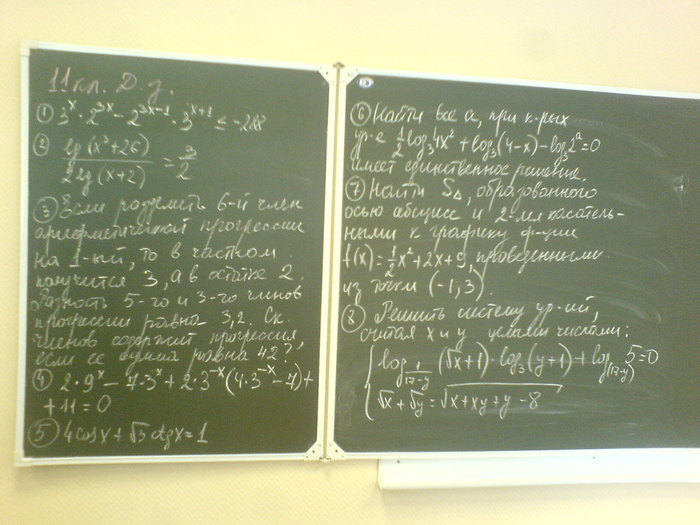 11 кл. Д.з.
① 3^x · 2^{3x} - 2^{3x-1} · 3^{x+1} ≤ -288
② lg(x³+26) / 2lg(x+2) = 3/2
③ Если разделить 6-й член
арифметической прогрессии
на 1-ый, то в частном
получится 3, а в остатке 2.
Разность 5-го и 3-го членов
прогрессии равна 3,2. Ск.
членов содержит прогрессия,
если её сумма равна 42?
④ 2·9^x - 7·3^x + 2·3^{-x}(4·3^{-x} - 7) +
+ 11 = 0
⑤ 4cosx + √3 ctgx = 1
⑥ Найти все a, при к-рых
ур-е ½log₃4x² + log₃(4-x) - log₃2^a = 0
имеет единственное решение.
⑦ Найти S△, образованного
осью абсцисс и 2-мя касатель-
ными к графику ф-ции
f(x) = ½x² + 2x + 9, проведёнными
из точки (-1; 3).
⑧ Решить систему ур-ий,
считая x и y целыми числами:
log_{1/(17-y)}(√x+1) · log₃(y+1) + log_{(17-y)}5 = 0
√x + √y = √(x+xy+y-8)